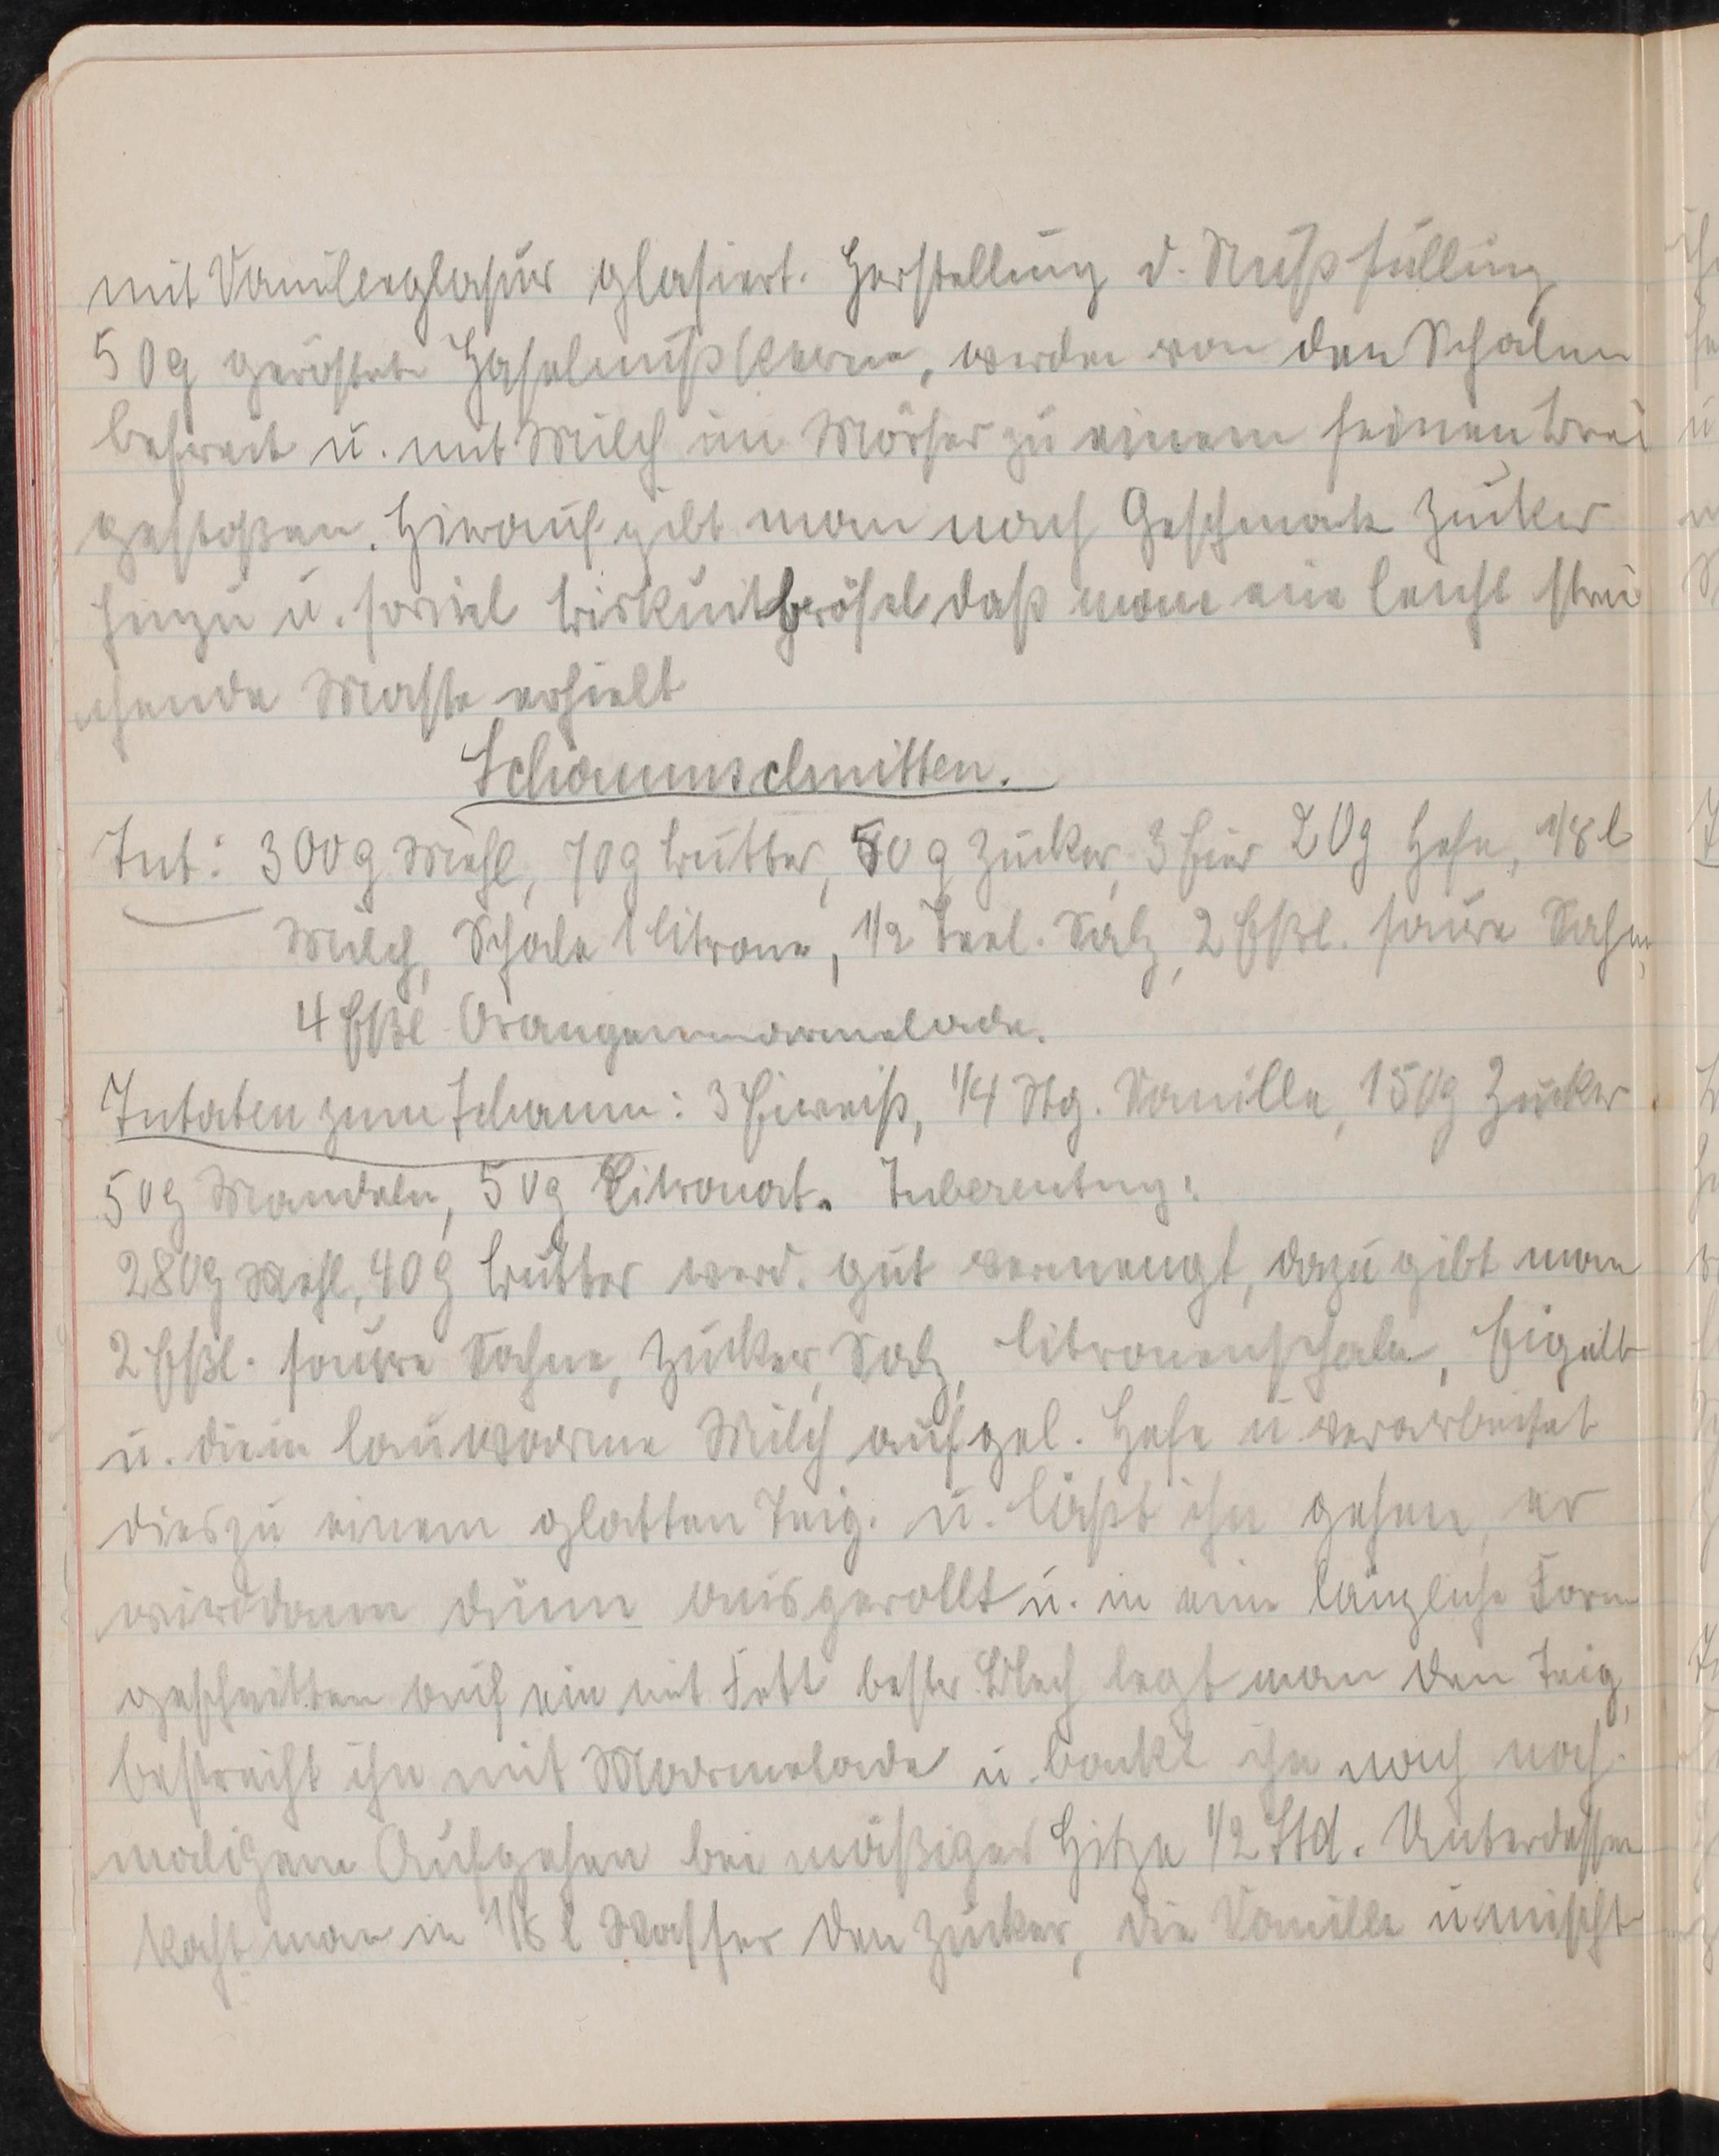 mit Vanilleglasur glasiert. Herstellung d. Nußfülling
50g geröstete Haselnußkerne, werden von den Schalen
befreit u. mit Milch im Mörser zu einem feinen Brei
gestoßen. Hierauf gibt man nach Geschmack Zucker
hinzu u. soviel Biskuitbrösel daß man eine leicht strei
chende Masse erhält
Schaumschnitten.
Zut: 300g Mehl, 70g Butter, 50g Zucker, 3 Eier 20g Hefe, 1/8 l
Milch, Schale 1 Citrone, 1/2 Teel. Salz, 2 Eßl. saure Sahne,
4 Eßl Orangenmarmelade.
Zutaten zum Schaum: 3 Eiweiß, 1/4 Stg. Vanille, 150g Zucker
50g Mandeln, 50g Citronat. Zubereitung:
280g Mehl, 40g Butter werd. gut vermengt, dazu gibt man
2 Eßl. saure Sahne, Zucker, Salz, Citronenschale, Eigelb
u. die in lauwarme Milch aufgel. Hefe u verarbeitet
dies zu einem glatten Teig. u. läßt ihn gehen, er
wird dann dünn ausgerollt u. in eine längliche Form
geschnitten auf ein mit Fett bestr. Blech legt man den Teig,
bestreicht ihn mit Marmelade u. backt ihn nach noch-
maligem Aufgehen bei mäßiger Hitze 1/2 Std. Unterdessen
kocht man in 1/8 l Wasser den Zucker, die Vanille u. mischt